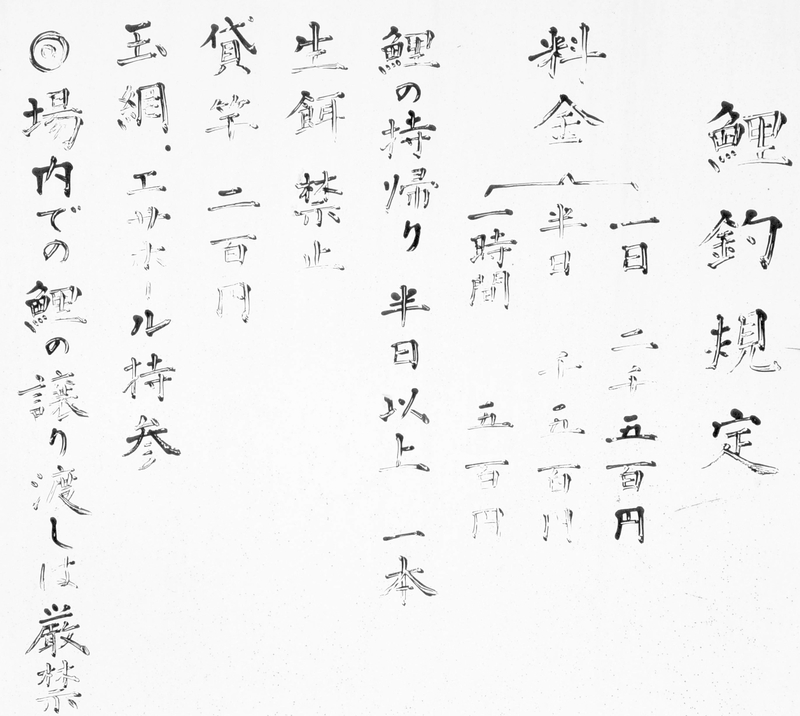 鯉釣規定
料金
一日 二千五百円
半日 千五百円
一時間 五百円
鯉の持帰り 半日以上 一本
生餌禁止
貸竿 二百円
玉網.エサボール持参
◎場内での鯉の譲り渡しは厳禁